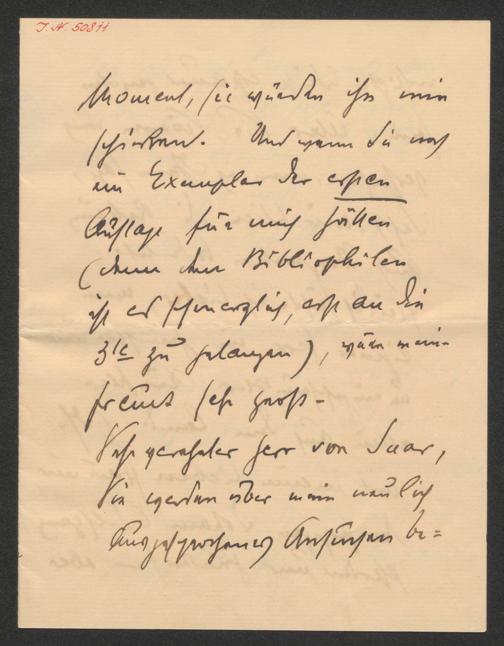 J. N. 50811
Moment, Sie würden ihn mir
schicken. Und wenn Sie noch
ein Exemplar der ersten
Auflage für mich hätten
(denn dem Bibliophilen
ist es schmerzlich, erst an die
3te zu gelangen), wäre meine
freude sehr groß.
Sehr verehrter Herr von Saar,
Sie werden über mein neulich
ausgesprochenes Ansuchen be=